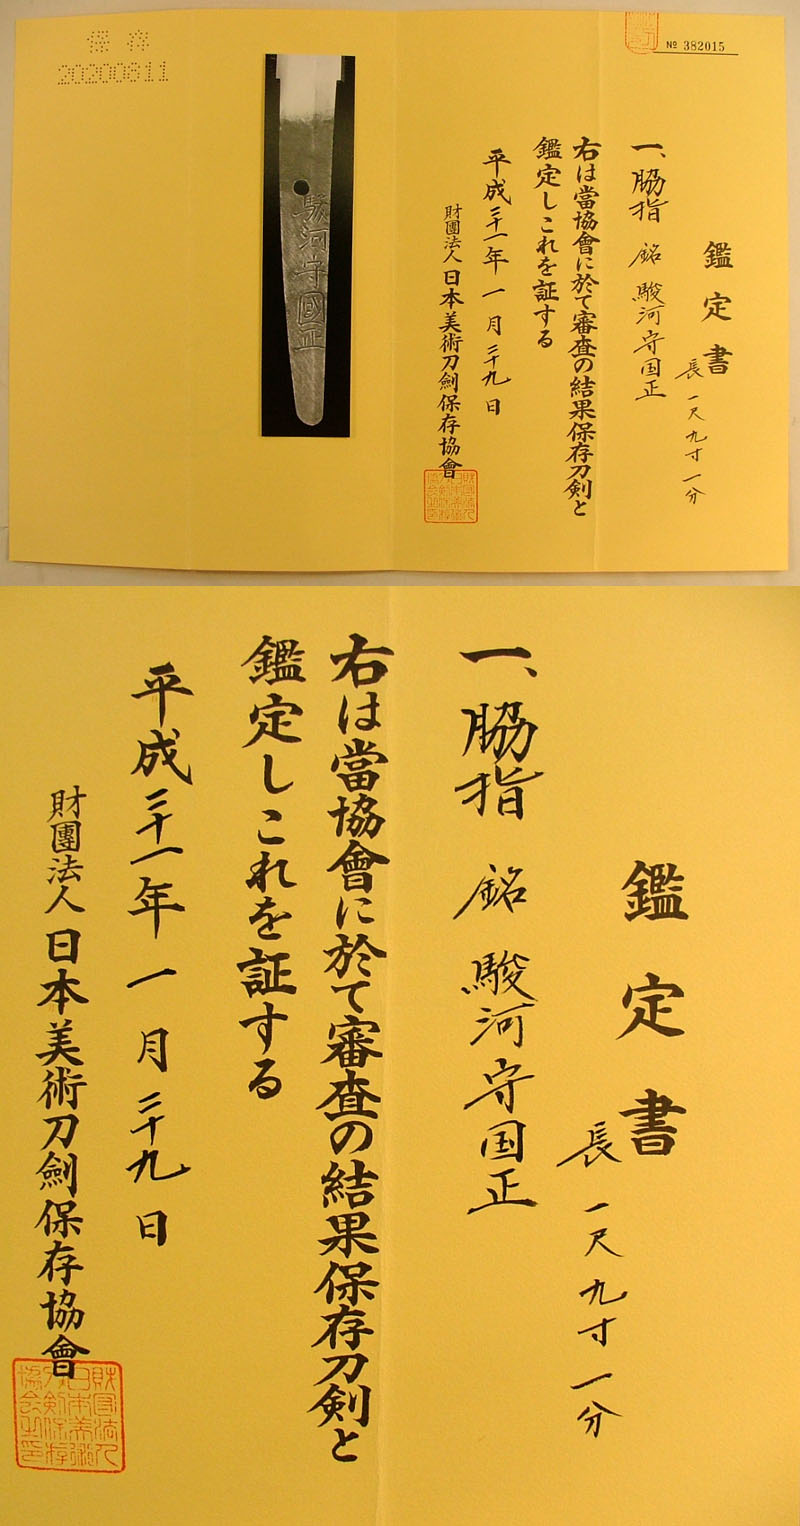 保存
20200811
駿河守國正
№ 382015
鑑定書
一、脇指 銘 駿河守国正
長 一尺九寸一分
右は當協會に於て審査の結果保存刀剣と
鑑定しこれを証する
平成三十一年 一月 二十九日
財團法人 日本美術刀劍保存協會
鑑定書
長 一尺九寸一分
一、脇指 銘 駿河守国正
右は當協會に於て審査の結果保存刀剣と
鑑定しこれを証する
平成三十一年 一月 二十九日
財團法人 日本美術刀劍保存協會